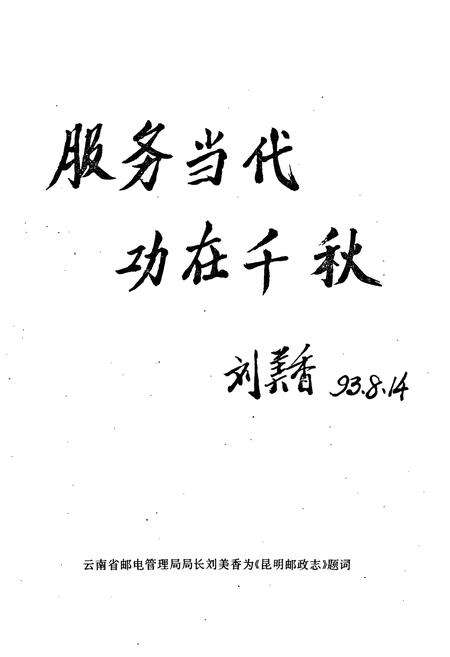 服务当代
功在千秋
刘美香 93.8.14
云南省邮电管理局局长刘美香为《昆明邮政志》题词